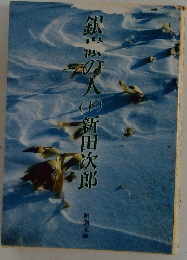 銀嶺の人(下)新田次郎
新潮文庫